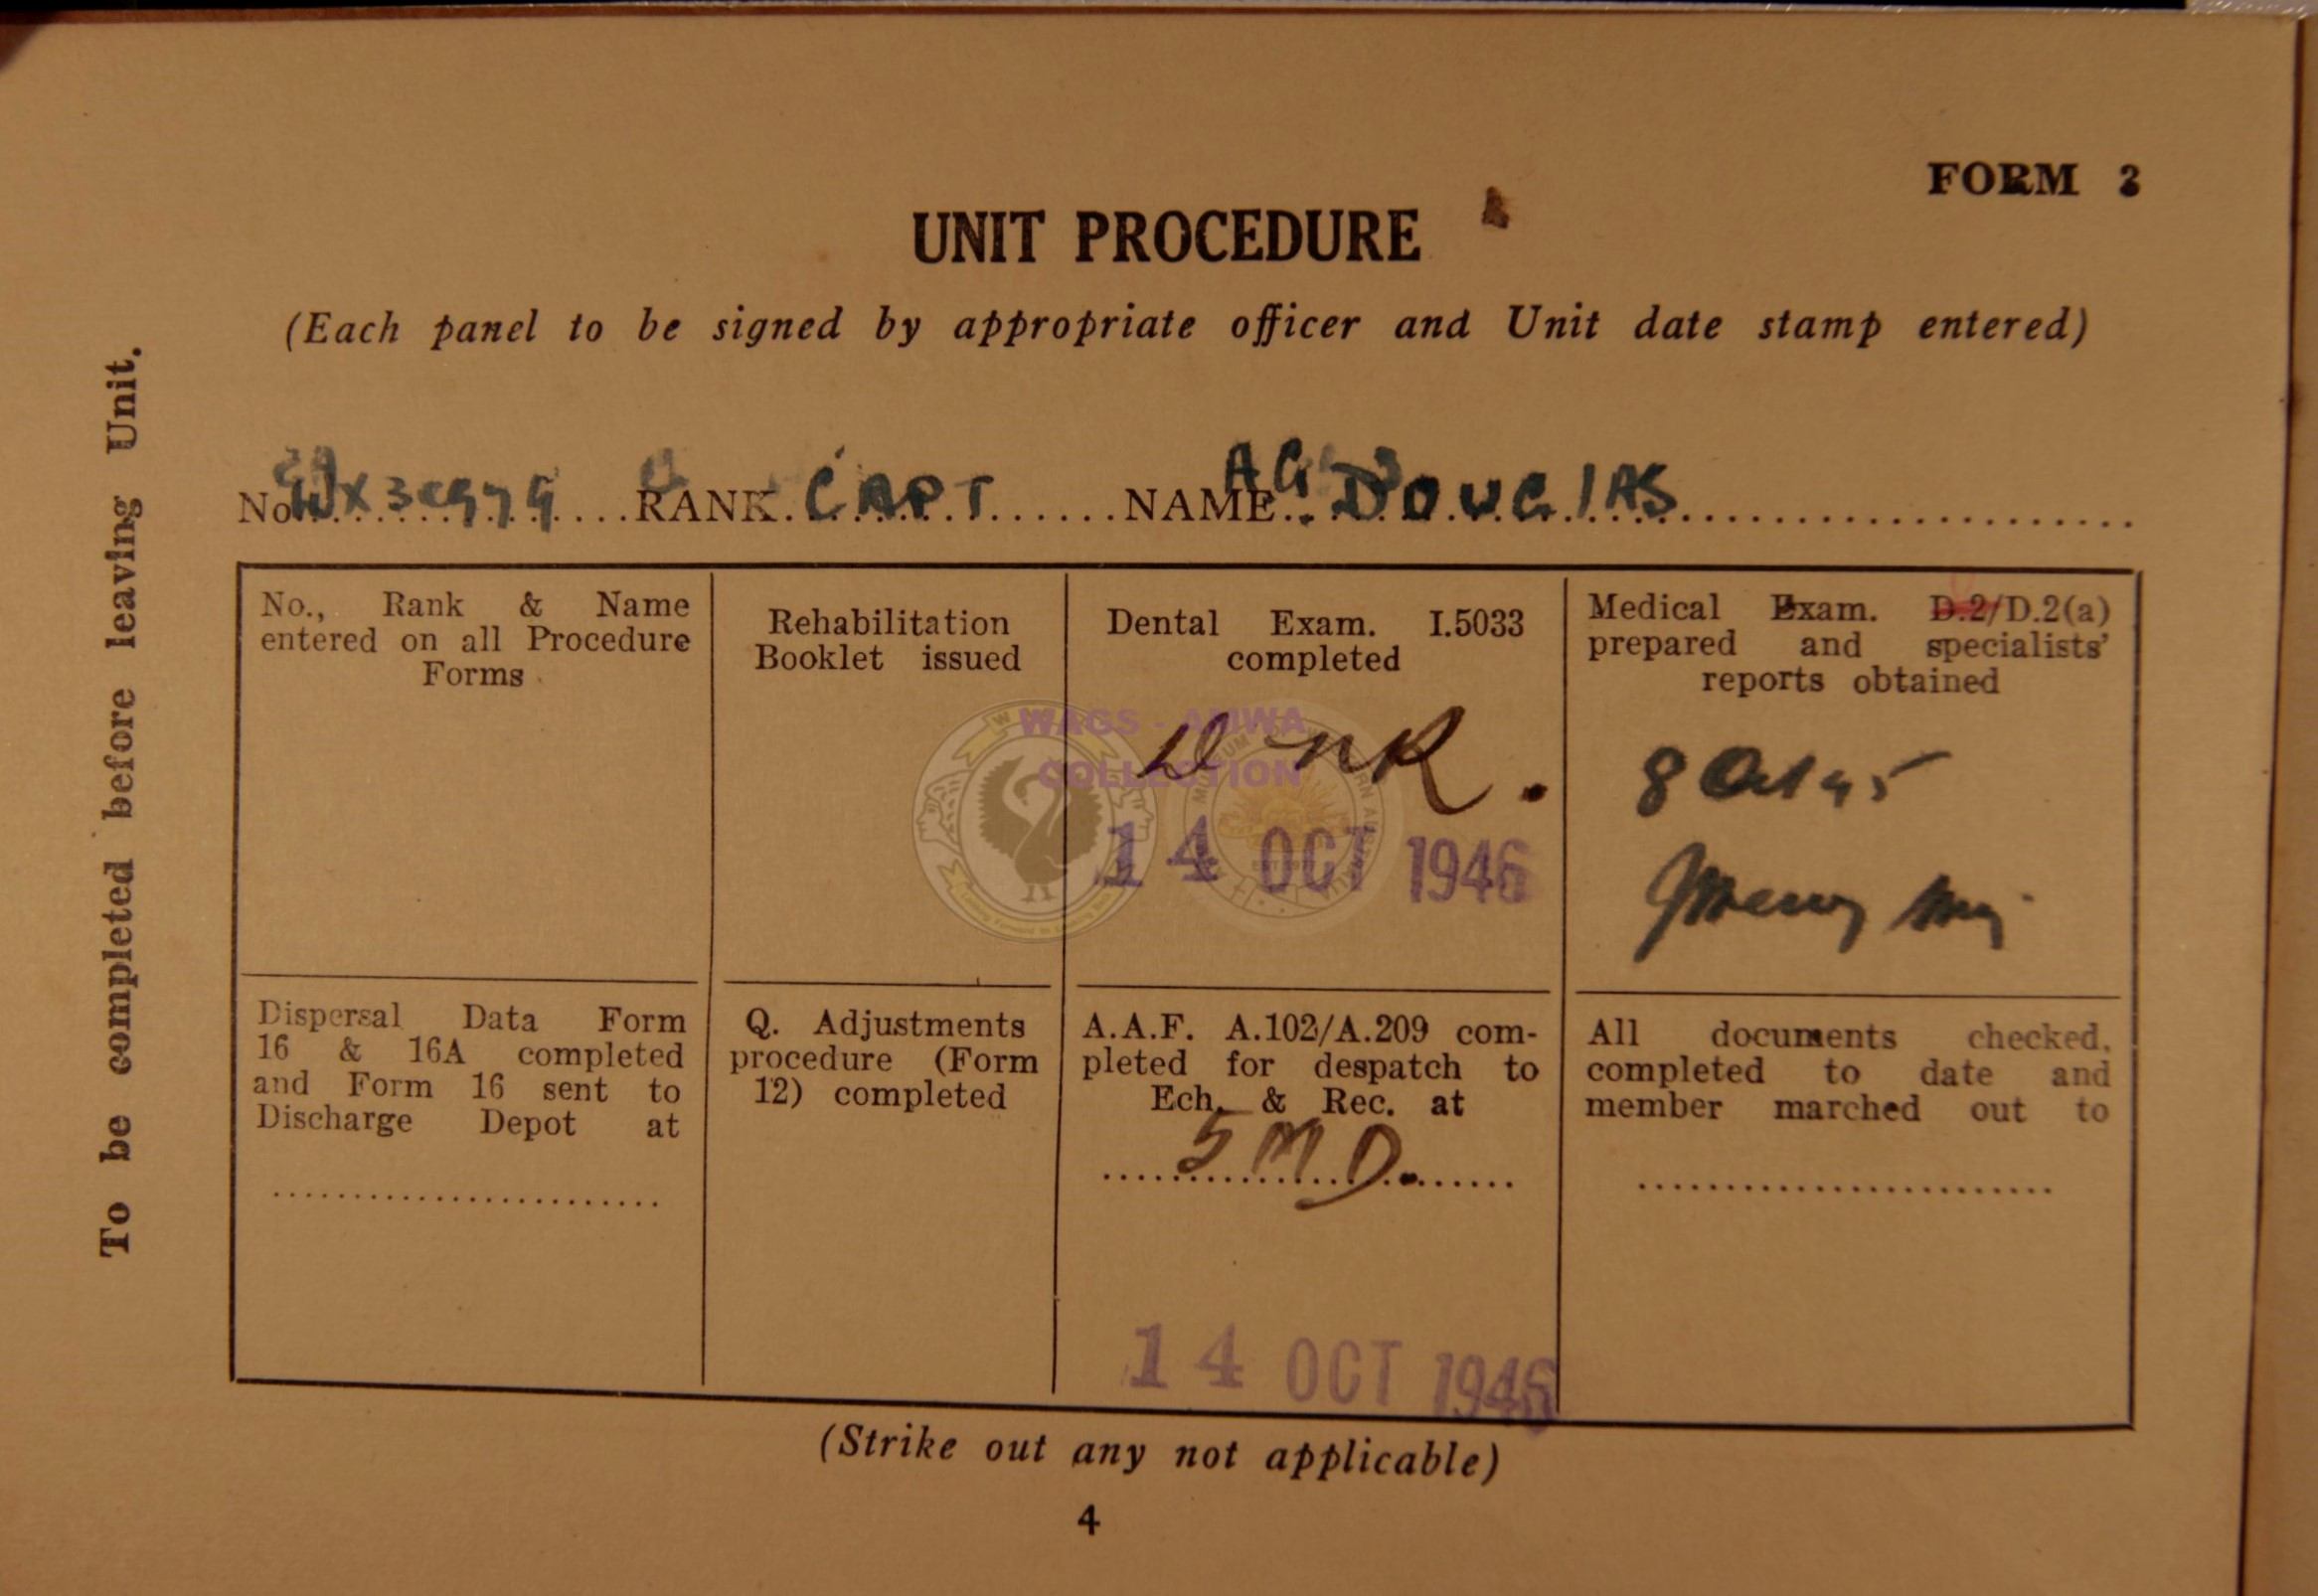 FORM 2
UNIT PROCEDURE
(Each panel to be signed by appropriate officer and Unit date stamp entered)
To be completed before leaving Unit.
No. RANK. CAPT NAME. AG DOUGLAS
No., Rank & Name
entered on all Procedure
Forms
Rehabilitation
Booklet issued
Dental Exam. I.5033
completed
14 OCT 1946
Medical Exam. D.2/D.2(a)
prepared and specialists'
reports obtained
8 Oct 45
WAGS - AMWA
COLLECTION
Dispersal Data Form
16 & 16A completed
and Form 16 sent to
Discharge Depot at
Q. Adjustments
procedure (Form
12) completed
A.A.F. A.102/A.209 com-
pleted for despatch to
Ech. & Rec. at
5 M D.
14 OCT 1946
All documents checked,
completed to date and
member marched out to
(Strike out any not applicable)
4